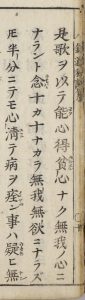 是歌ヲ以テ能心得貧心ナク無我ノ心ニ
ナラント念ナカナナカラ無我無欲ニナラズ
𪜈半分ニテモ心清テ病ヲ痊ン事ハ疑ヒ無